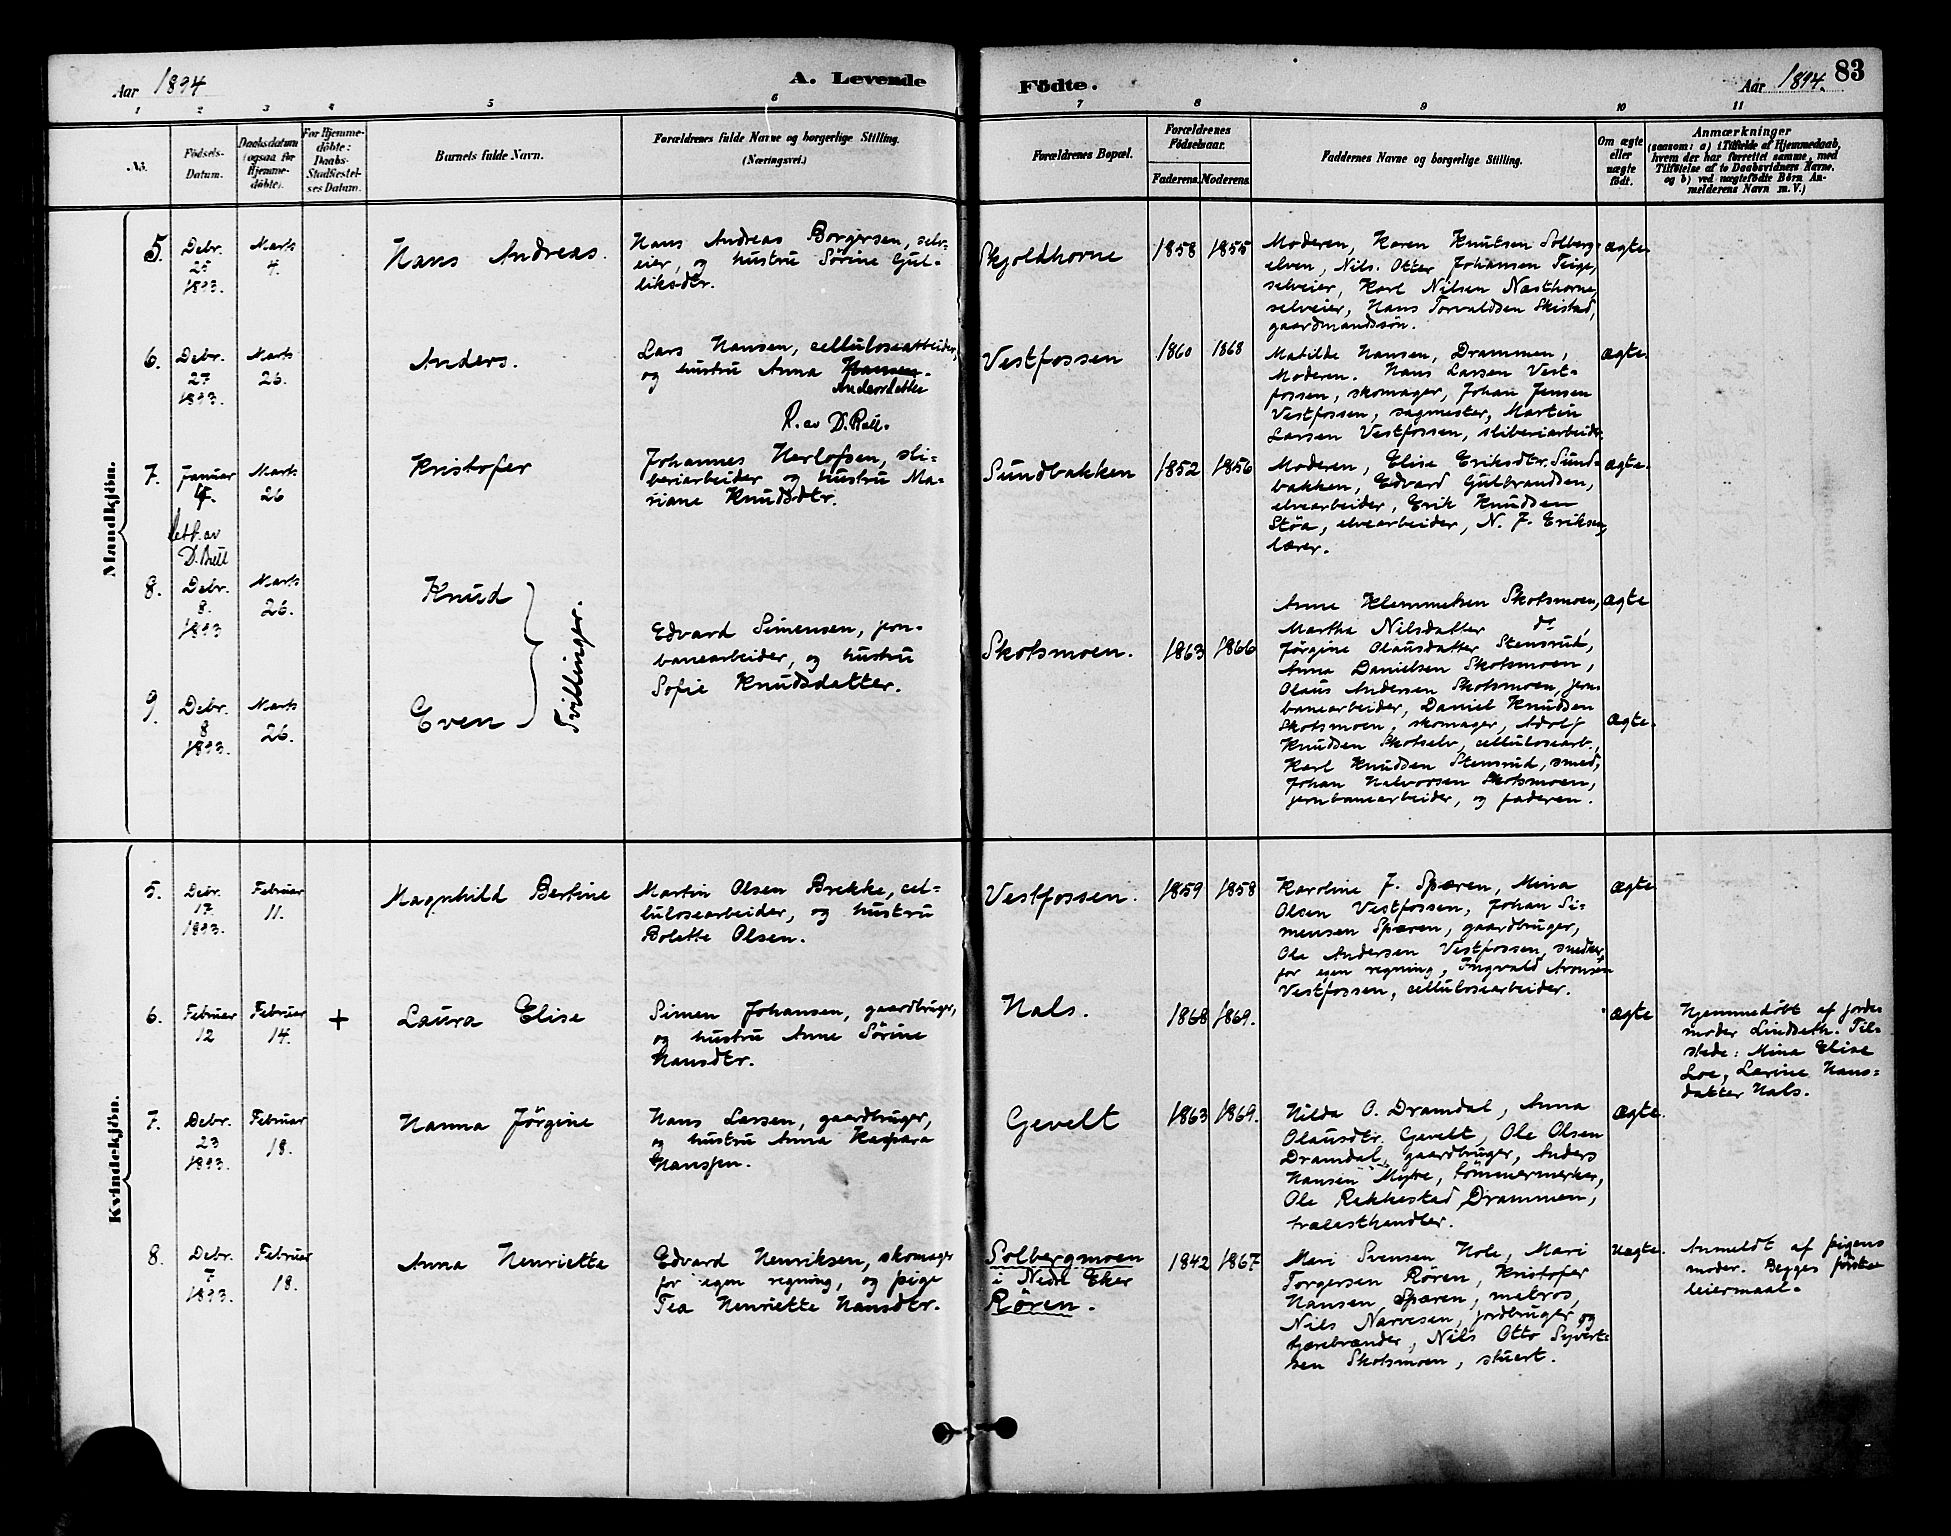 Aar 1894
A. Levende
Fødte.
Aar 1894.
83
1 2 3 4 5 6 7 8 9 10 11
No.
Fødsels-
Datum.
Daabsdatum
(ogsaa for
Hjemme-
døbte).
For Hjemme-
døbte:
Daabs-
Stadfæstel-
ses Datum.
Barnets fulde Navn.
Forældrenes fulde Navne og borgerlige Stilling.
(Næringsvei.)
Forældrenes Bopæl.
Forældrenes
Fødselsaar.
Faderens. Moderens.
Faddernes Navne og borgerlige Stilling.
Om ægte
eller
uægte
født.
Anmærkninger
(saasom: a) i Tilfælde af Hjemmedaab,
hvem der har forrettet samme, med
Tilføielse af to Daabsvidners Navne,
og b) ved uægtefødte Børn An-
melderens Navn m. V.)
Mandkjøn.
5.
Debr.
25
1893.
Marts
4.
Hans Andreas.
Hans Andreas Borgersen, selv-
eier, og hustru Sørine Gul-
liksdtr.
Skjoldhorne
1858 1855
Moderen, Karen Knutsen Solberg-
elven, Nils Otter Johansen Teige,
selveier, Karl Nilsen Næsthorne,
selveier, Hans Torvaldsen Skistad,
gaardmandssøn.
ægte
6.
Debr.
27
1893.
Marts
26.
Anders.
Lars Hansen, cellulosearbeider,
og hustru Anna Hansen.
Andersdatter
R. av D. Rull.
Vestfossen
1860 1868
Matilde Hansen, Drammen,
Moderen. Hans Larsen Vest-
fossen, skomager, Johan Jensen
Vestfossen, sagmester, Martin
Larsen Vestfossen, sliberiarbeider.
ægte.
7.
Januar
4.
Marts
26
Kristofer
Johannes Herlofsen, sli-
beriarbeider og hustru Ma-
riane Knudsdtr.
Sundbakken
1852 1856
Moderen, Elise Eriksdtr. Sund-
bakken, Edvard Gulbrandsen,
elvearbeider, Erik Knudsen
Støa, elvearbeider, N. J. Eriksen,
lærer.
ægte.
Rett. av
D. Rull
8.
Debr.
8.
1893
Marts
26.
Knud
Tvillinger.
Edvard Simensen, jern-
banearbeider, og hustru
Sofie Knudsdatter.
Skotsmoen.
1863 1866
Anne Klemmetsen Skotsmoen,
Martha Nilsdatter do,
Jørgine Olausdatter Stensrud,
Anna Danielsen Skotsmoen,
Olaus Andersen Skotsmoen, jern-
banearbeider, Daniel Knudsen
Skotsmoen, skomager, Adolf
Knudsen Skotselv, cellulosearb.,
Karl Knudsen Stensrud, smed,
Johan Halvorsen Skotsmoen,
jernbanearbeider, og faderen.
ægte
9.
Debr.
8
1893.
Marts
26.
Even
ægte.
Kvindekjøn.
5.
Debr.
17.
1893.
Februar
11.
Magnhild Bertine
Martin Olsen Brekke, cel-
lulosearbeider, og hustru
Bolette Olsen.
Vestfossen.
1859 1858
Karoline J. Spæren, Mina
Olsen Vestfossen, Johan Si-
mensen Spæren, gaardbruger,
Ole Andersen Vestfossen, snedker
for egen regning, Ingvald Aronsen
Vestfossen, cellulosearbeider.
ægte
6.
Februar
12
Februar
14.
+
Laura Elise
Simen Johansen, gaardbruger,
og hustru Anne Sørine
Hansdtr.
Hals.
1868 1869.
ægte
Hjemmedøbt af jorde-
moder Lindseth. Til-
stede: Mina Elise
Loe, Lavine Hans-
datter Hals.
7.
Debr.
23
1893.
Februar
18.
Hanna Jørgine
Hans Larsen, gaardbruger,
og hustru Anna Kaspara
Hanssen.
Gevelt
1863 1869.
Hilda O. Dramdal, Anna
Olausdtr. Gevelt, Ole Olsen
Dramdal, gaardbruger, Anders
Hansen Myhre, tømmermerker,
Ole Rekkestad Drammen,
trælasthendler.
ægte.
8.
Debr.
7
1893.
Februar
18.
Anna Henriette
Edvard Henriksen, skomager
for egen regning, og pige
Tea Henriette Hansdtr.
Solbergmoen
i Nedre Eker
Røren.
1842 1867.
Mari Svensen Hole, Mari
Torgersen Røren, Kristofer
Hansen Spæren, matros,
Nils Narvesen, jordbruger og
tjærebrænder, Nils Otto Syvert-
sen Skotsmoen, stuert.
uægte.
Anmeldt af pigens
moder. Begges første
leiermaal.